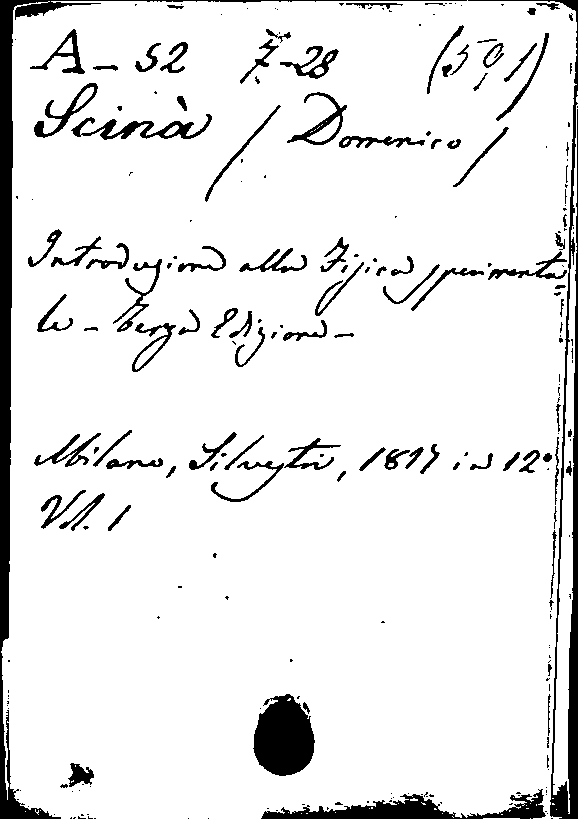 A - 52 7-28 (591)
Scinà / Domenico /
Introduzione alla Fisica sperimenta
le - Terza Edizione -
Milano, Silvestri, 1817 in 12°
Vol. 1